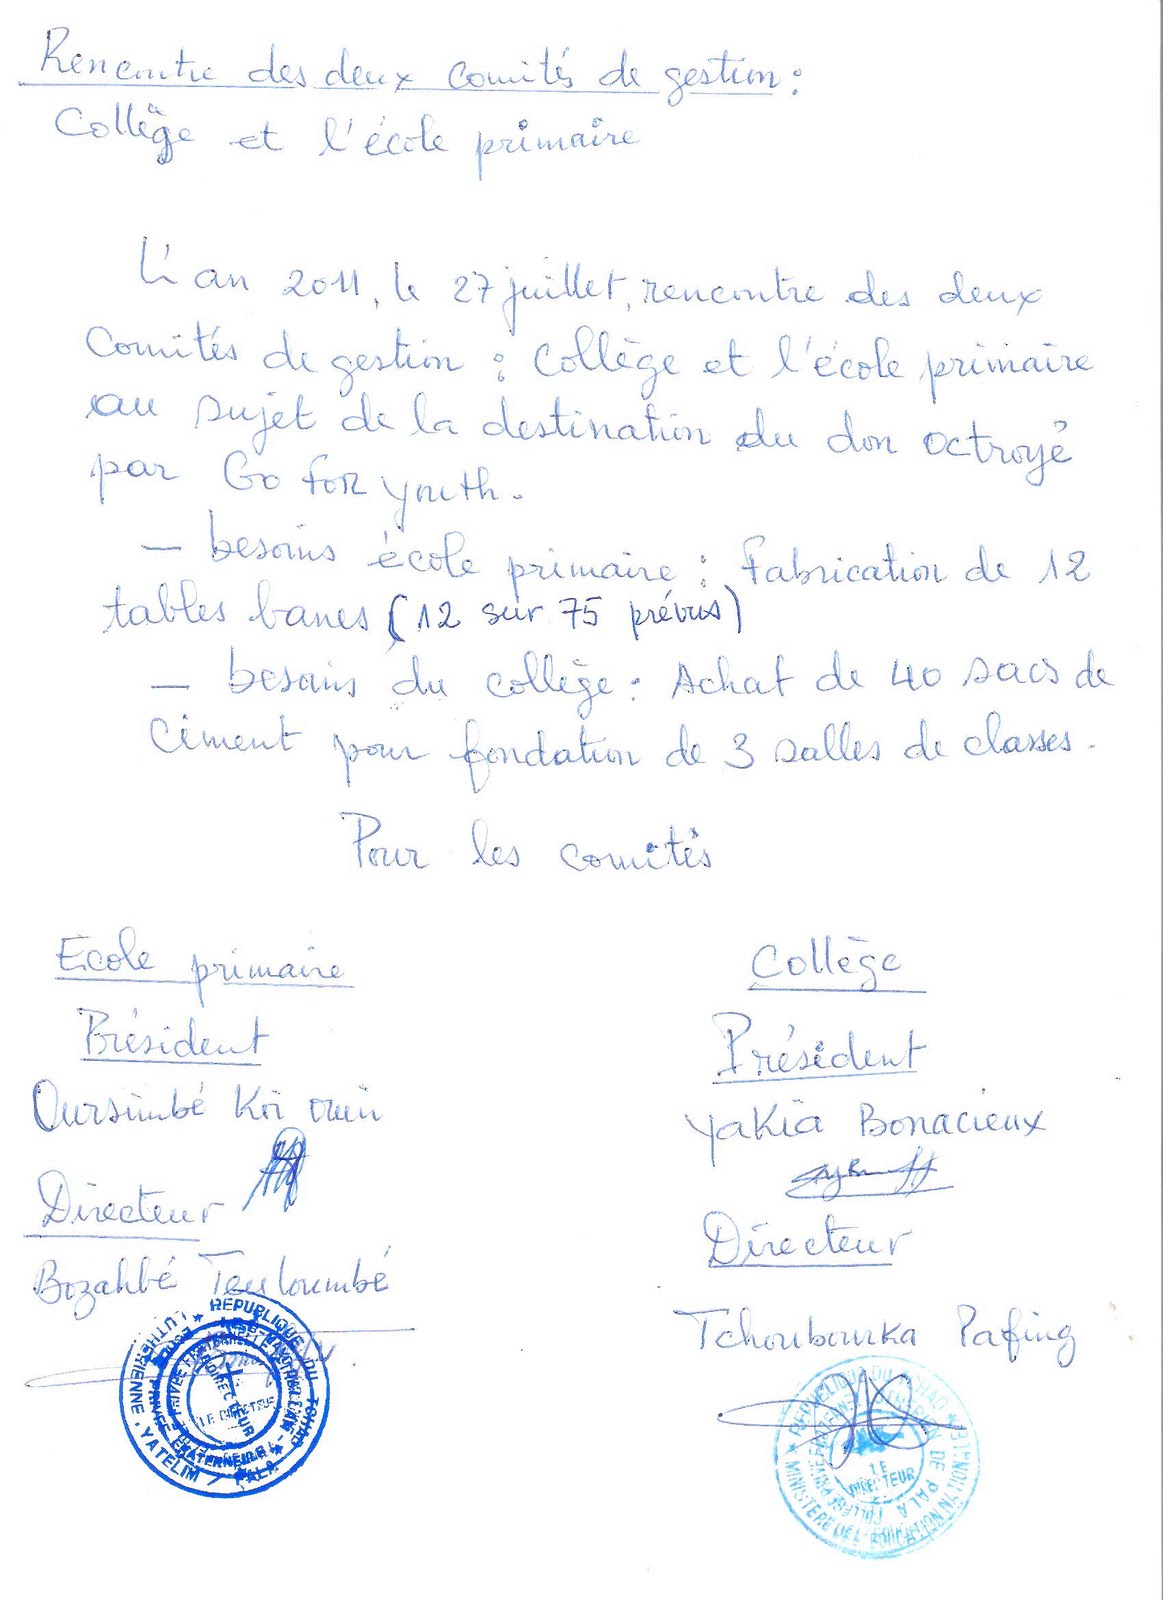 Rencontre des deux comités de gestion :
Collège et l'école primaire
L'an 2011, le 27 juillet, rencontre des deux
comités de gestion : Collège et l'école primaire
au sujet de la destination du don octroyé
par Go for youth.
— besoins école primaire : Fabrication de 12
tables bancs (12 sur 75 prévus)
— besoins du collège : Achat de 40 sacs de
ciment pour fondation de 3 salles de classes.
Pour les comités
Ecole primaire
Collège
Président
Président
Oursimbé Koi
Yakia Bonacieux
Directeur
Directeur
Bozahbé Teuloumbé
Tchoubouka Pafing
REPUBLIQUE DU TCHAD
LUTHERIENNE
YATELIM / PALA
LE DIRECTEUR
REPUBLIQUE DU TCHAD
LE
DIRECTEUR
DE PALA